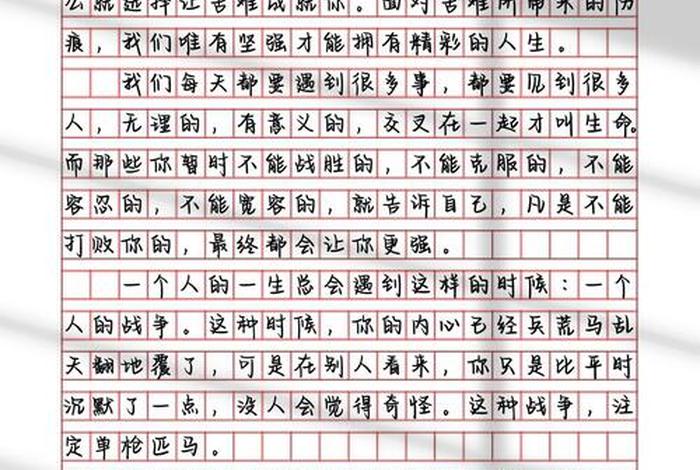 么就选择让苦难成就你。面对苦难所带来的伤
痕，我们唯有坚强才能拥有精彩的人生。
我们每天都要遇到很多事，都要见到很多
人，无理的，有意义的，交叉在一起才叫生命。
而那些你暂时不能战胜的，不能克服的，不能
容忍的，不能宽容的，就告诉自己，凡是不能
打败你的，最终都会让你更强。
一个人的一生总会遇到这样的时候：一个
人的战争。这种时候，你的内心已经兵荒马乱
天翻地覆了，可是在别人看来，你只是比平时
沉默了一点，没人会觉得奇怪。这种战争，注
定单枪匹马。